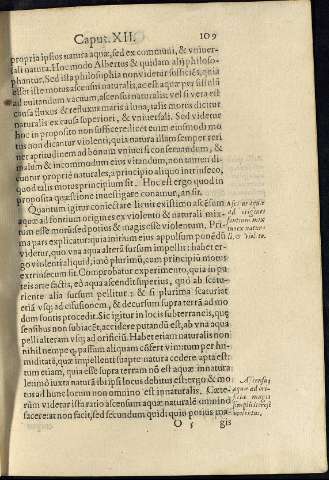 Caput XII. 109
propria ipsius natura aquæ, sed ex communi, & vniuer-
sali natura. Hoc modo Albertus & quidam alij philoso-
phantur. Sed ista philosophia non videtur sufficiēs, quia
esset iste motus ascensui naturalis, ac est aquæ per fistulā
ad euitandum vacuum, ascensui naturalis: vel si vera est
causa fluxus & refluxus maris à luna, talis motus dicitur
naturalis ex causa superiori, & vniuersali. Sed videtur
hoc in proposito non sufficere: licet enim eiusmodi mo-
tus non dicantur violenti, quia natura illam semper reti-
net aptitudinem ad bonum vniuersi conseruandum, &
malum & incommodum eius vitandum, non tamen di-
cuntur propriè naturales, a principio aliquo intrinseco,
quod talis motus principium sit. Hoc est ergo quod in
proposita quæstione inuestigare conamur, an sit.
Quantum igitur coniectare licuit existimo ascēsum
aquæ ad fontium origines ex violento & naturali mix-
tum esse motū, sed potius & magis esse violentum. Pri-
ma pars explicatur quia initium eius appulsum ponēdū
videtur, quo vna aqua alterā sursum impellit: habet er-
go violenti aliquid, imò plurimū, cum principio motus
extrinsecum sit. Comprobatur experimento, quia in pu-
teis arte factis, eò aqua ascendit superius, quo ab scatu-
riente alia sursum pellitur: & si plurima scaturiat
etiā vsq; ad effusionem, & decursum supra terrā ad mo
dum fontis procedit. Sic igitur in locis subterraneis, quę
sensibus non subiacēt, accidere putandū est, ab vna aqua
pelli alteram vsq; ad orificiū. Habet etiam naturalis non
nihil nempe q; passum aliquam cōfert vim: tum per hu-
miditatē, quæ impellenti suapte natura cedere apta est:
tum etiam, quia esse supra terram nō est aquæ innatura-
le nimò iuxta naturā ibi ipsi locus debitus est: ergo & mo
tus ad hunc locum non omnino est innaturalis. Cæte-
rùm videtur ista ratio ascensum aquæ naturale omnino
facere: at non facit, sed secundum quid: quo potius ma-
O 5 gis
Ascēsus aquæ
ad origines
fontium mix
tus ex natura
li, & violēto.
Ascensus
aquæ ad ori-
ficia magis
simpliciter est
violentus.